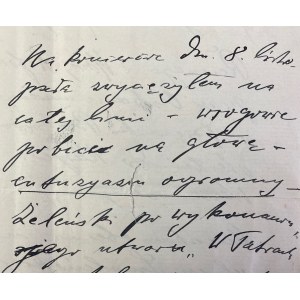 Na koncercie dn. 8. listo-
pada zwyciężyłem na
całej linii - wrogowie
pobici na głowę -
entuzyazm ogromny -
Żeleński po wykonaniu
jego utworu „W Tatrach"